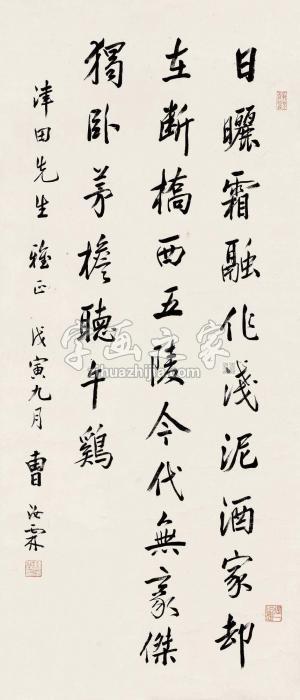 日曬霜融作淺泥酒家却
在斷橋西五陵今代無豪傑
獨臥茅檐聽午鷄
津田先生雅正 戊寅九月 曹汝霖
字画之家
shuazhijia.com